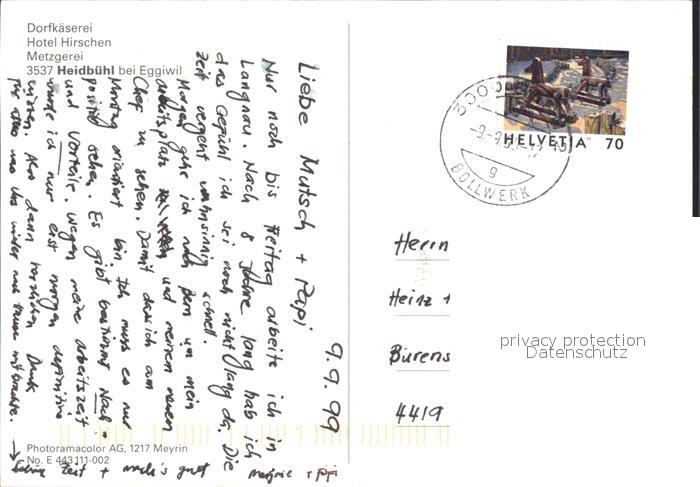 Dorfkäserei
Hotel Hirschen
Metzgerei
3537 Heidbühl bei Eggiwil
9.9.99
Liebe Mutsch + Papi
Nur noch bis Freitag arbeite ich in
Langnau. Nach 8 Jahre lang hab ich
das Gefühl ich sei noch nicht lang da. Die
Zeit vergeht wahnsinnig schnell.
Morgen gehe ich nach Bern um mein
Arbeitsplatz und meinen neuen
Chef zu sehen. Damit dass ich am
Montag orientiert bin. Ich muss es nur
positiv sehen. Es gibt bestimmt Nach-
und Vorteile. Wegen meine Arbeitszeit
würde ich nur erst morgen definitiv
wissen. Also dann herzlichen Dank
für alles was ihr wieder
Photoramacolor AG, 1217 Meyrin
No. E 443 111-002
Zeit + mach's guet
3000
-9.-9.99
9
BOLLWERK
HELVETIA 70
Herrn
Heinz
Bürens
4419
privacy protection
Datenschutz